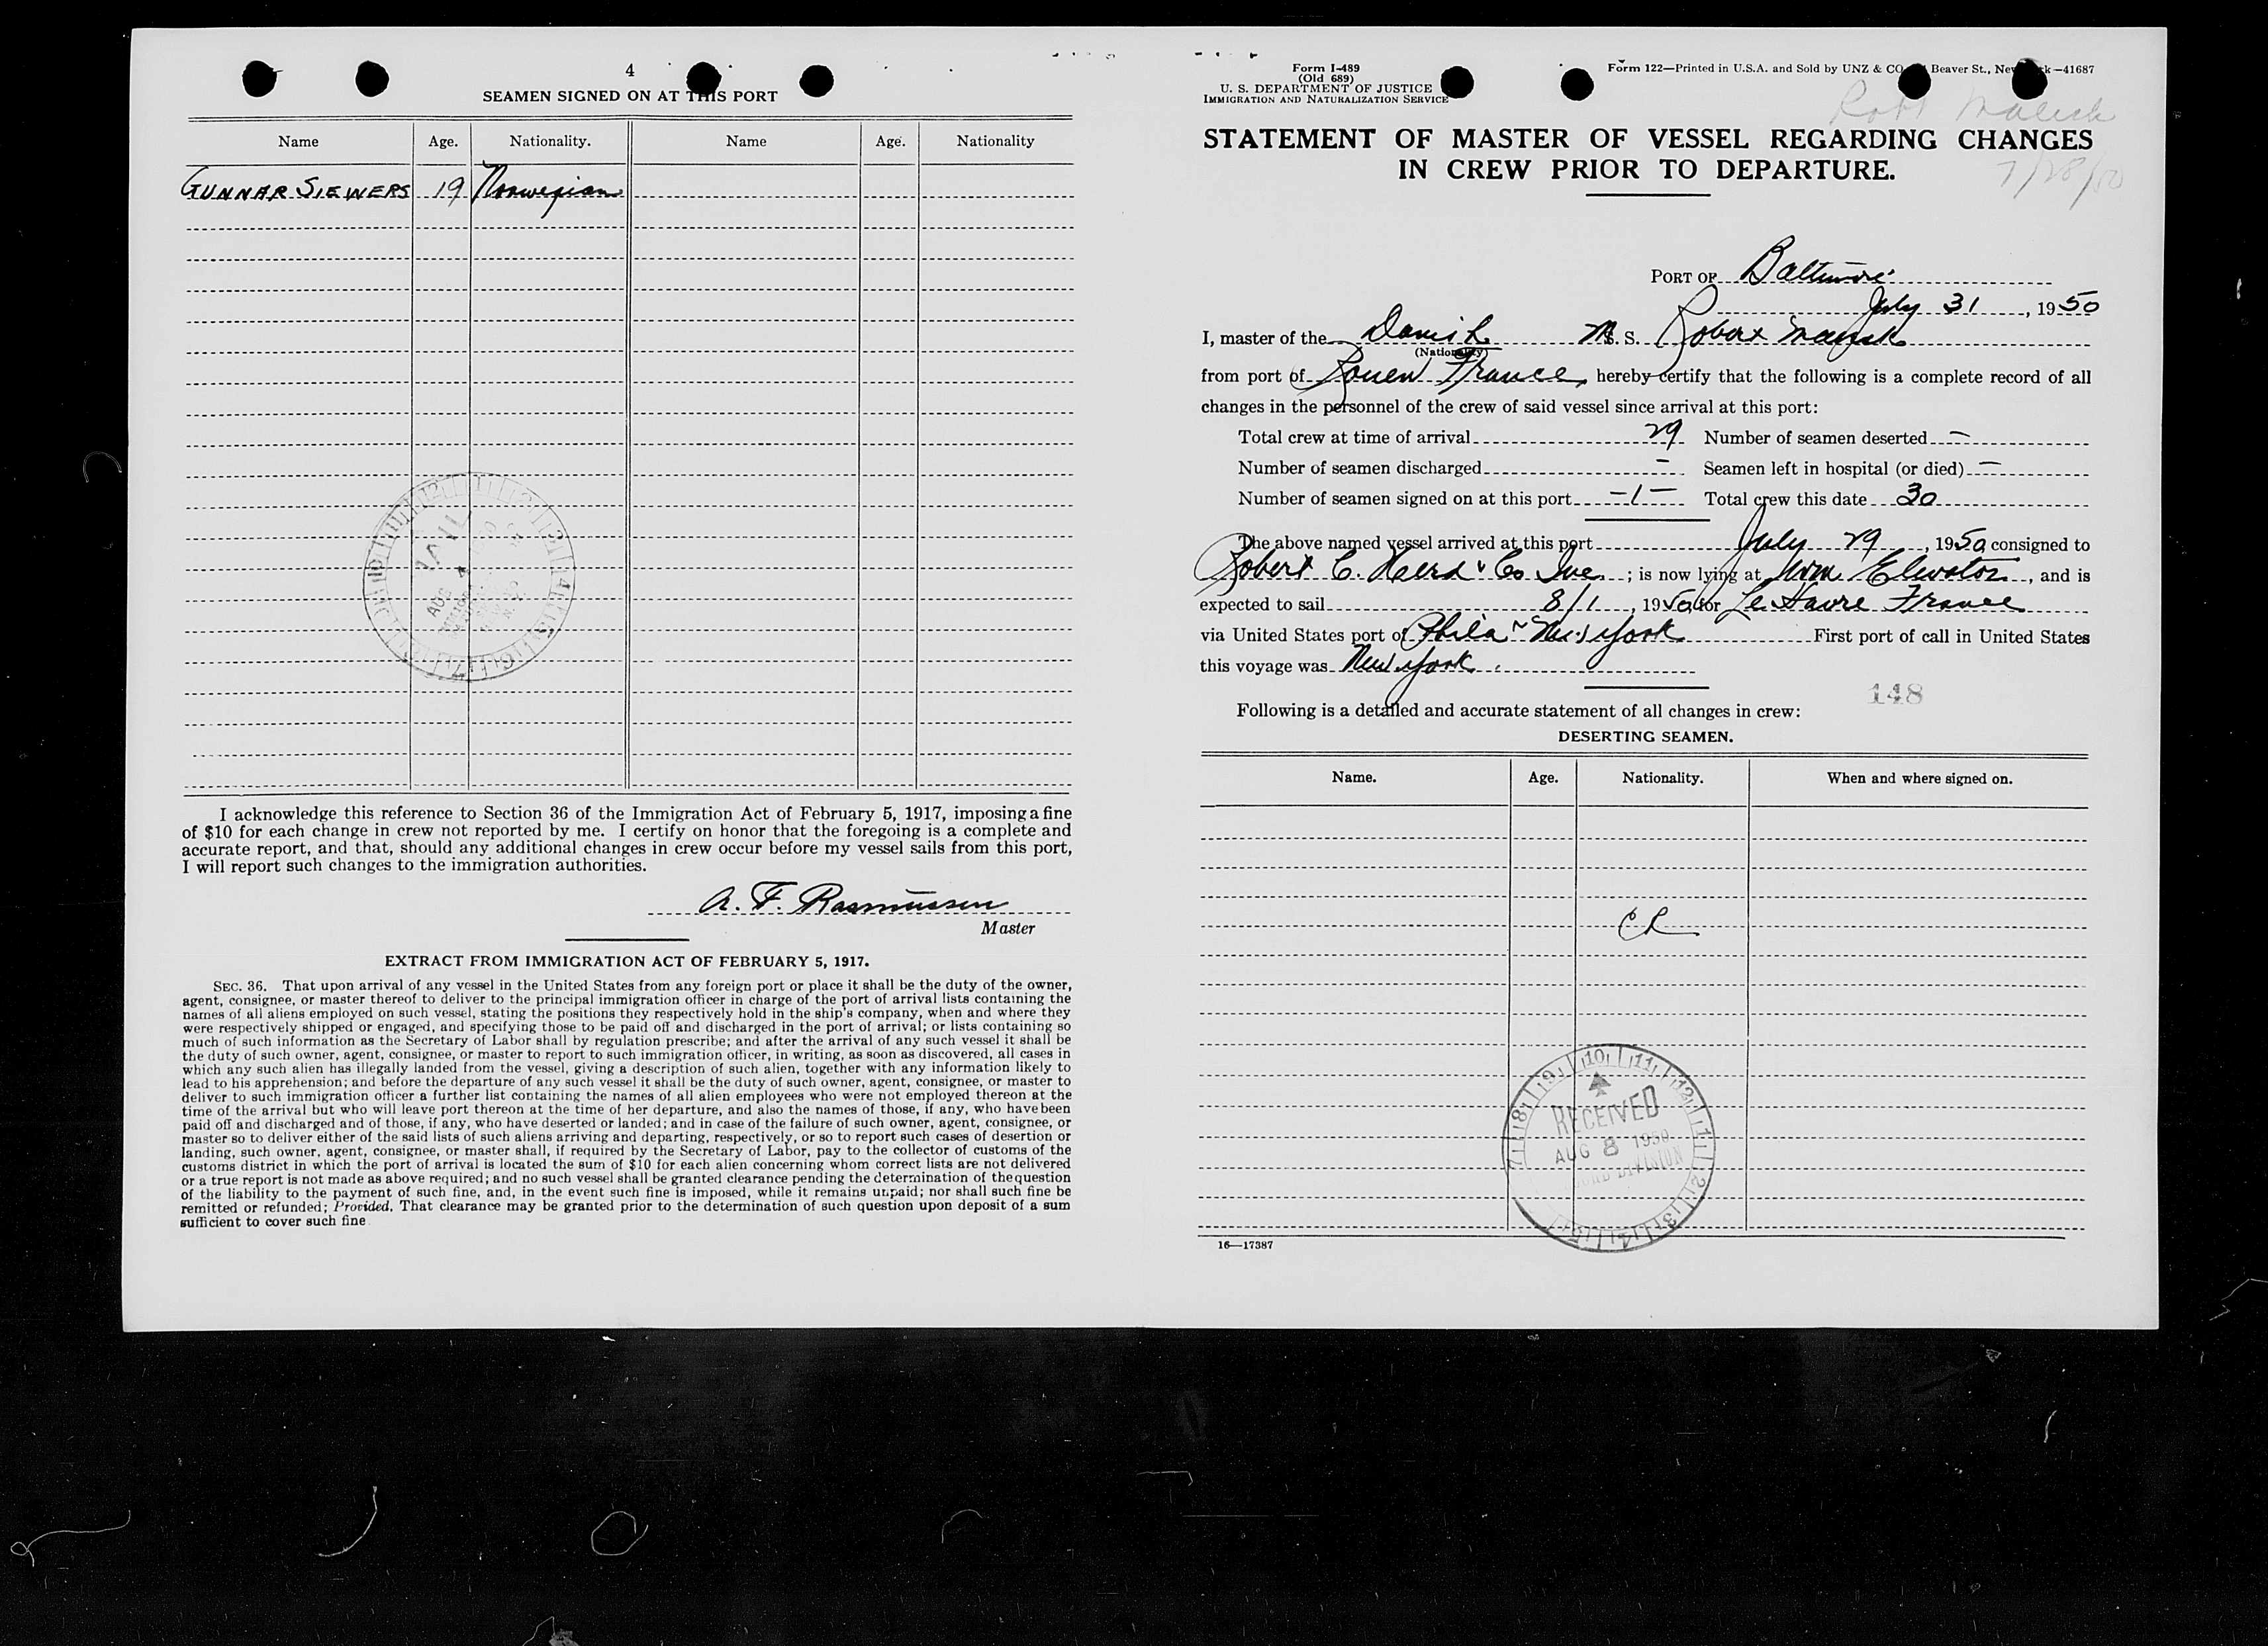 4
SEAMEN SIGNED ON AT THIS PORT
Name Age. Nationality. Name Age. Nationality
GUNNAR SIEWERS 19 Norwegian
I acknowledge this reference to Section 36 of the Immigration Act of February 5, 1917, imposing a fine
of $10 for each change in crew not reported by me. I certify on honor that the foregoing is a complete and
accurate report, and that, should any additional changes in crew occur before my vessel sails from this port,
I will report such changes to the immigration authorities.
A. F. Rasmussen
Master
EXTRACT FROM IMMIGRATION ACT OF FEBRUARY 5, 1917.
SEC. 36. That upon arrival of any vessel in the United States from any foreign port or place it shall be the duty of the owner,
agent, consignee, or master thereof to deliver to the principal immigration officer in charge of the port of arrival lists containing the
names of all aliens employed on such vessel, stating the positions they respectively hold in the ship's company, when and where they
were respectively shipped or engaged, and specifying those to be paid off and discharged in the port of arrival; or lists containing so
much of such information as the Secretary of Labor shall by regulation prescribe; and after the arrival of any such vessel it shall be
the duty of such owner, agent, consignee, or master to report to such immigration officer, in writing, as soon as discovered, all cases in
which any such alien has illegally landed from the vessel, giving a description of such alien, together with any information likely to
lead to his apprehension; and before the departure of any such vessel it shall be the duty of such owner, agent, consignee, or master to
deliver to such immigration officer a further list containing the names of all alien employees who were not employed thereon at the
time of the arrival but who will leave port thereon at the time of her departure, and also the names of those, if any, who have been
paid off and discharged and of those, if any, who have deserted or landed; and in case of the failure of such owner, agent, consignee, or
master so to deliver either of the said lists of such aliens arriving and departing, respectively, or so to report such cases of desertion or
landing, such owner, agent, consignee, or master shall, if required by the Secretary of Labor, pay to the collector of customs of the
customs district in which the port of arrival is located the sum of $10 for each alien concerning whom correct lists are not delivered
or a true report is not made as above required; and no such vessel shall be granted clearance pending the determination of the question
of the liability to the payment of such fine, and, in the event such fine is imposed, while it remains unpaid; nor shall such fine be
remitted or refunded; Provided, That clearance may be granted prior to the determination of such question upon deposit of a sum
sufficient to cover such fine
Form I-489
(Old 689)
U. S. DEPARTMENT OF JUSTICE
IMMIGRATION AND NATURALIZATION SERVICE
Form 122—Printed in U.S.A. and Sold by UNZ & CO. Beaver St., New York—41687
Robt Maersk
7/28/50
STATEMENT OF MASTER OF VESSEL REGARDING CHANGES
IN CREW PRIOR TO DEPARTURE.
PORT OF Baltimore
July 31, 1950
I, master of the Danish M. S. Robert Maersk
(Nationality)
from port of Rouen France, hereby certify that the following is a complete record of all
changes in the personnel of the crew of said vessel since arrival at this port:
Total crew at time of arrival 29 Number of seamen deserted —
Number of seamen discharged — Seamen left in hospital (or died) —
Number of seamen signed on at this port —1— Total crew this date 30
The above named vessel arrived at this port July 29, 1950 consigned to
Robert C. Herd & Co Inc.; is now lying at Elevator, and is
expected to sail 8/1, 1950, for Le Havre France
via United States port of Phila & New York First port of call in United States
this voyage was New York.
148
Following is a detailed and accurate statement of all changes in crew:
DESERTING SEAMEN.
Name. Age. Nationality. When and where signed on.
RECEIVED
AUG 8 1950
16—17387